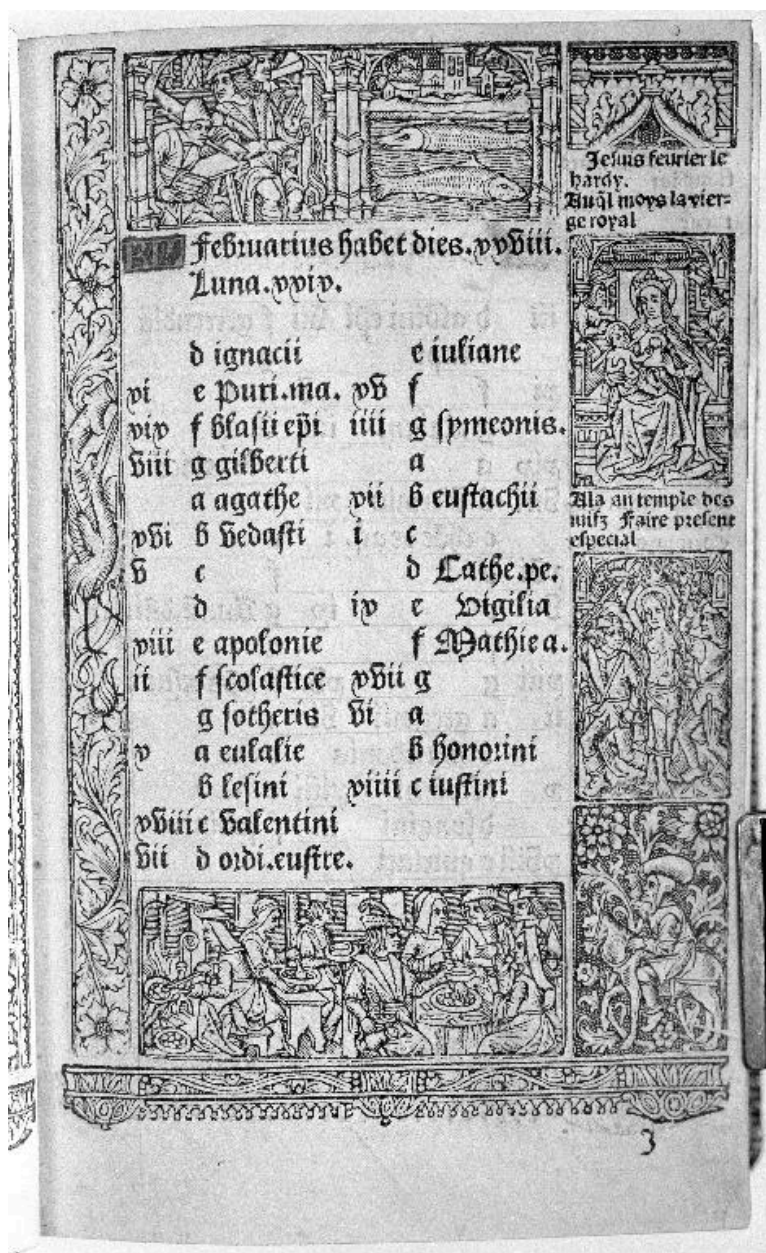 Februarius habet dies.xxviii.
Luna.xxix.
d ignacii
xi e Puri.ma.
xix f blasii epi
viii g gilberti
a agathe
xvi b vedasti
v c
d
xiii e apolonie
ii f scolastice
g sotheris
x a eulalie
b lesini
xviii c valentini
vii d ordi.eustre.
e iuliane
xv f
iiii g symeonis.
a
xii b eustachii
i c
d Cathe.pe.
ix e Vigilia
f Mathie a.
xvii g
vi a
b honorini
xiiii c iustini
Je suis feurier le
hardy.
Auq̄l moys la vier-
ge royal
Ala au temple des
iuifz Faire present
especial